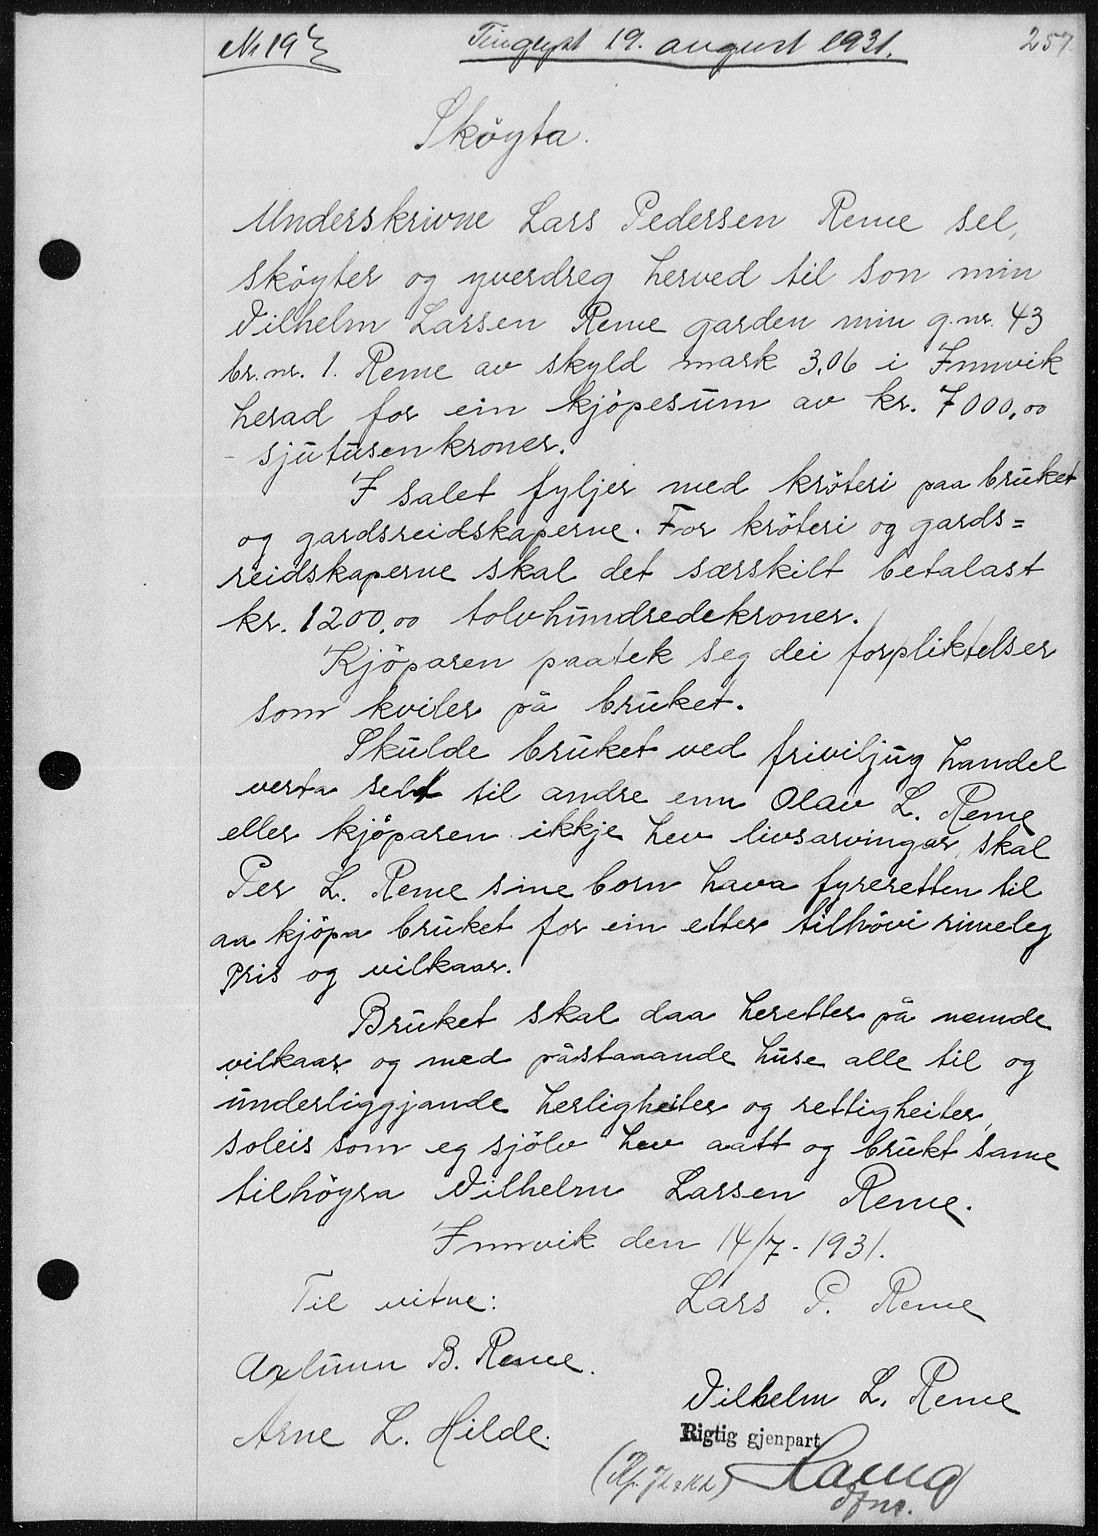 Tinglyst 19. august 1931.
257
Sköyta.
Underskrivne Lars Pedersen Reme sel,
sköyter og yverdreg herved til son min
Vilhelm Larsen Reme garden min g.nr. 43
br.nr. 1. Reme av skyld mark 3,06 i Innvik
herad for ein kjöpesum av kr. 7000,00
- sjutusenkroner.
I salet fyljer med kröteri paa bruket
og gardsreidskaperne. For kröteri og gards=
reidskaperne skal det særskilt betalast
kr. 1200,00 tolvhundredekroner.
Kjöparen paatek seg dei forpliktelser
som kviler på bruket.
Skulde bruket ved friviljug handel
verta selt til andre enn Olav L. Reme
eller kjöparen ikkje hev livsarvingar, skal
Per L. Reme sine born hava fyreretten til
aa kjöpa bruket for ein etter tilhövi rimeleg
pris og vilkaar.
Bruket skal daa heretter på nemde
vilkaar og med påstaaande huse alle til og
underliggjande herligheiter og rettigheiter,
soleis som eg sjölv hev aatt og brukt same
tilhöyra Vilhelm Larsen Reme.
Innvik den 14/7 - 1931.
Til vitne:
Lars P. Reme
B. Reme.
Vilhelm L. Reme
Arne L. Hilde.
Rigtig gjenpart